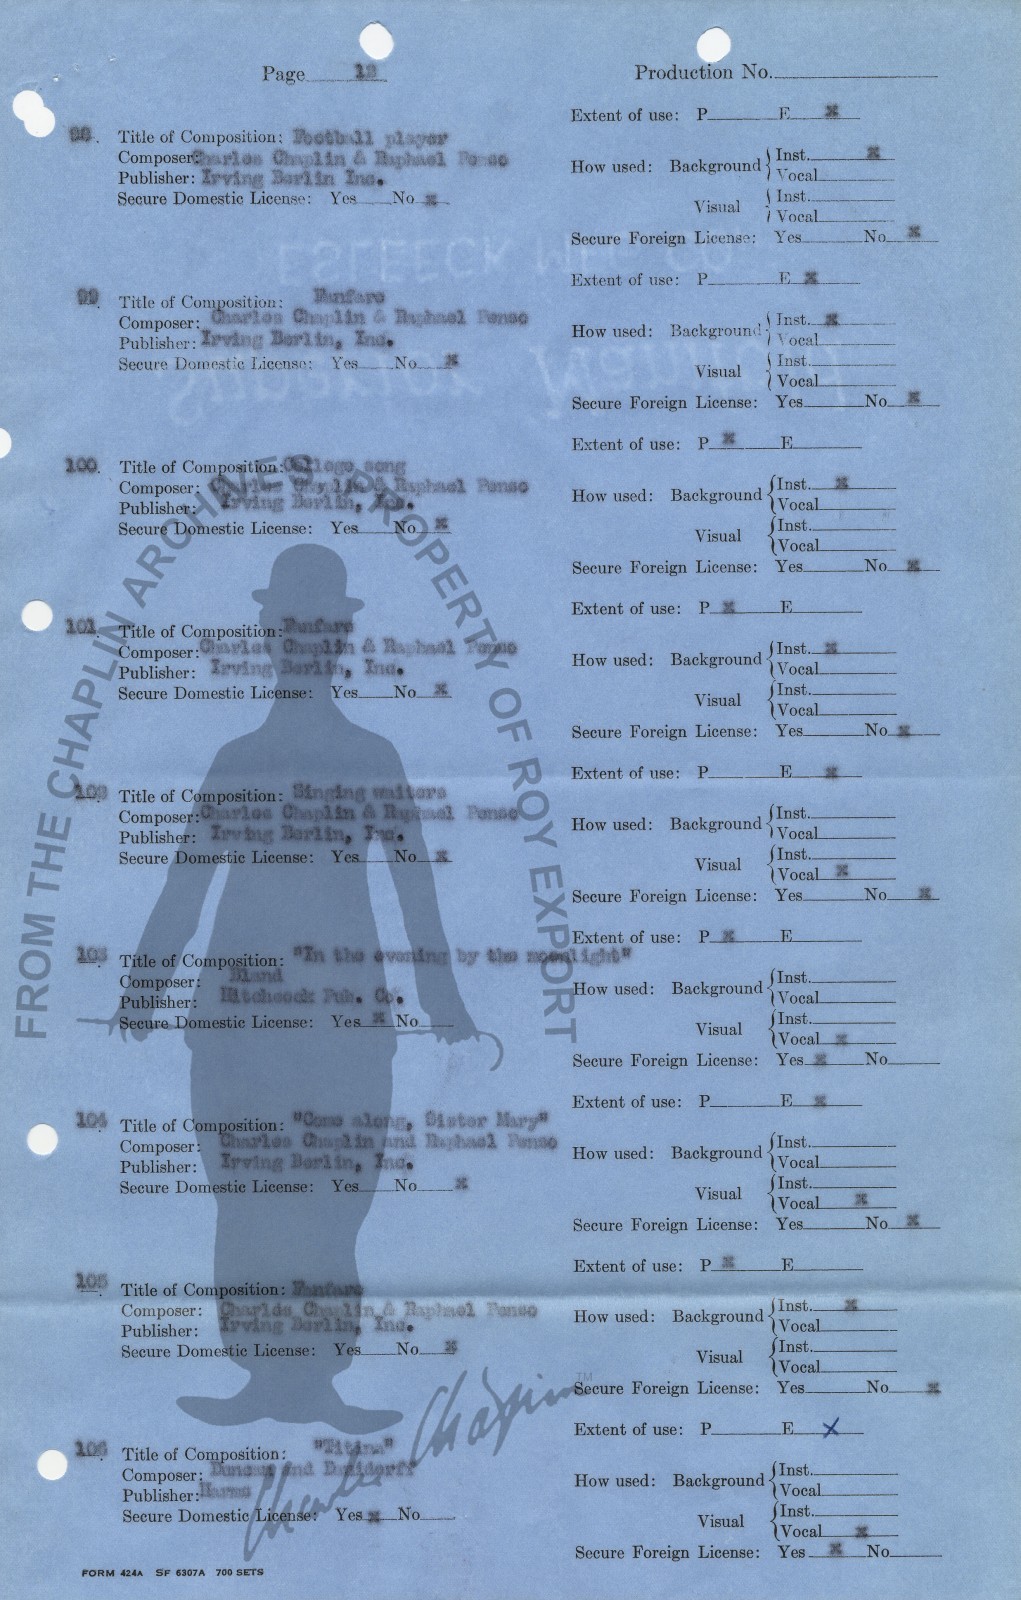 Page 12
Production No.
98. Title of Composition: Football player
Composer: Charles Chaplin & Raphael Penso
Publisher: Irving Berlin Inc.
Secure Domestic License: Yes No x
Extent of use: P E x
How used: Background Inst. x
Vocal
Visual Inst.
Vocal
Secure Foreign License: Yes No x
99. Title of Composition: Fanfare
Composer: Charles Chaplin & Raphael Penso
Publisher: Irving Berlin, Inc.
Secure Domestic License: Yes No x
Extent of use: P E x
How used: Background Inst. x
Vocal
Visual Inst.
Vocal
Secure Foreign License: Yes No x
100. Title of Composition: College song
Composer: Charles Chaplin & Raphael Penso
Publisher: Irving Berlin, Inc.
Secure Domestic License: Yes No x
Extent of use: P x E
How used: Background Inst. x
Vocal
Visual Inst.
Vocal
Secure Foreign License: Yes No x
101. Title of Composition: Fanfare
Composer: Charles Chaplin & Raphael Penso
Publisher: Irving Berlin, Inc.
Secure Domestic License: Yes No x
Extent of use: P x E
How used: Background Inst. x
Vocal
Visual Inst.
Vocal
Secure Foreign License: Yes No x
102. Title of Composition: Singing waiters
Composer: Charles Chaplin & Raphael Penso
Publisher: Irving Berlin, Inc.
Secure Domestic License: Yes No x
Extent of use: P E x
How used: Background Inst.
Vocal
Visual Inst.
Vocal x
Secure Foreign License: Yes No x
103. Title of Composition: "In the evening by the moonlight"
Composer: Bland
Publisher: Hitchcock Pub. Co.
Secure Domestic License: Yes x No
Extent of use: P x E
How used: Background Inst.
Vocal
Visual Inst.
Vocal x
Secure Foreign License: Yes x No
104. Title of Composition: "Come along, Sister Mary"
Composer: Charles Chaplin and Raphael Penso
Publisher: Irving Berlin, Inc.
Secure Domestic License: Yes No x
Extent of use: P E x
How used: Background Inst.
Vocal
Visual Inst.
Vocal x
Secure Foreign License: Yes No x
105. Title of Composition: Fanfare
Composer: Charles Chaplin & Raphael Penso
Publisher: Irving Berlin, Inc.
Secure Domestic License: Yes No x
Extent of use: P x E
How used: Background Inst. x
Vocal
Visual Inst.
Vocal
Secure Foreign License: Yes No x
106. Title of Composition: "Titina"
Composer: Duncan and
Publisher: Harms
Secure Domestic License: Yes x No
Extent of use: P E x
How used: Background Inst.
Vocal
Visual Inst.
Vocal x
Secure Foreign License: Yes x No
Charles Chaplin
FORM 424A SF 6307A 700 SETS
FROM THE CHAPLIN ARCHIVES PROPERTY OF ROY EXPORT
TM